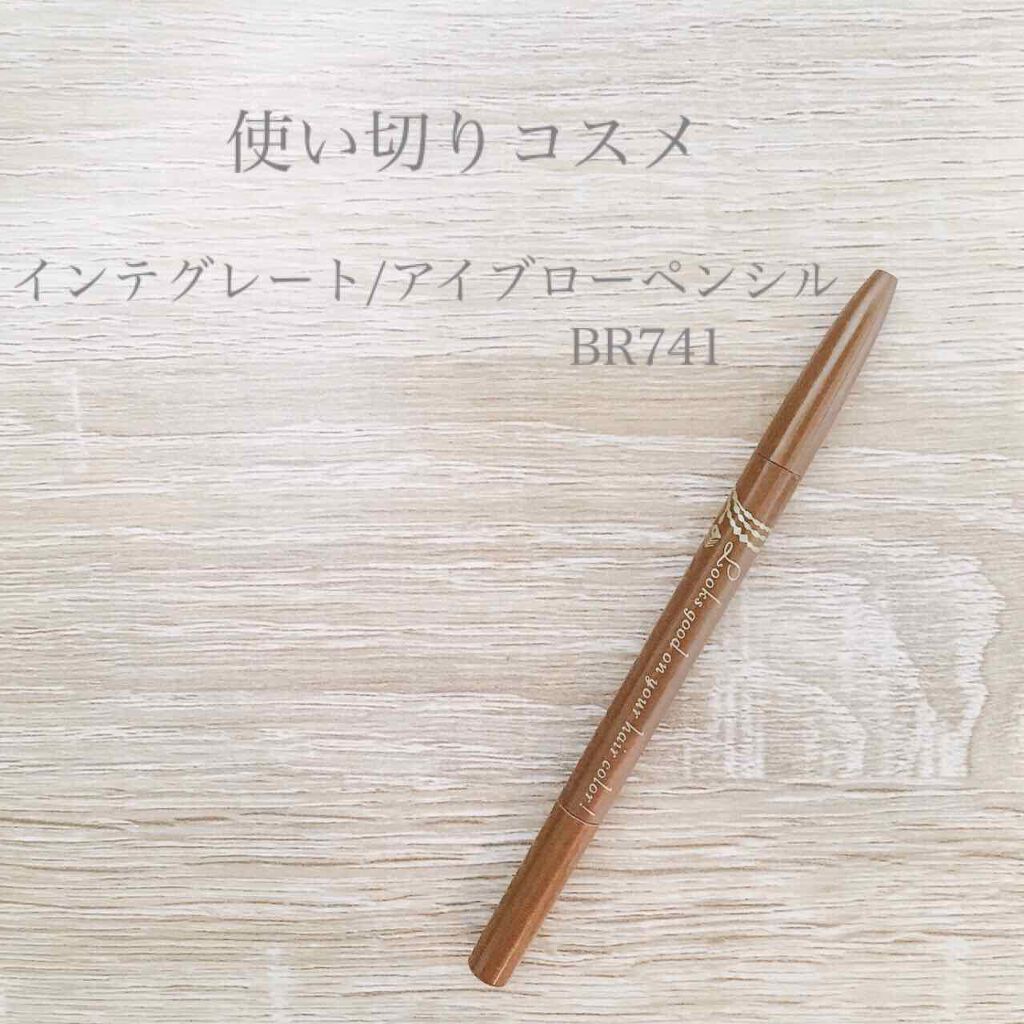 使い切りコスメ
インテグレート/アイブローペンシル
BR741
Looks good on your hair color!